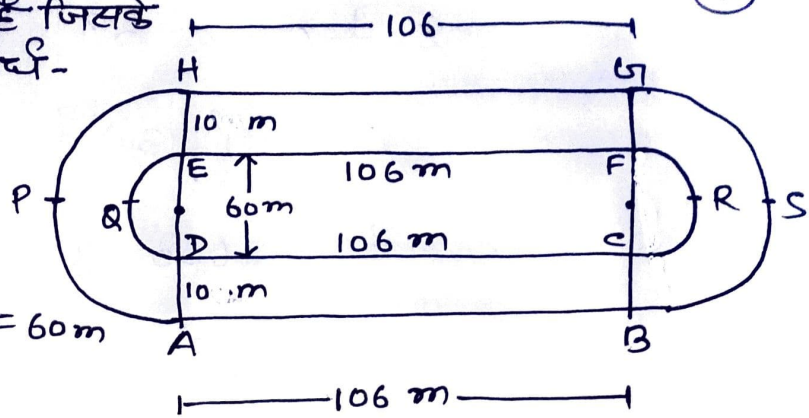 है जिसके
र्घ-
106
H G
10 m
E 106 m F
P Q 60m R S
D 106 m C
10 m
= 60m
A B
106 m